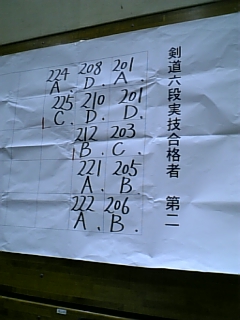 剣道六段実技合格者 第二
201 A.
201 D.
203 C.
205 B.
206 B.
208 D.
210 D.
212 B.
221 A.
222 A.
224 A.
225 C.